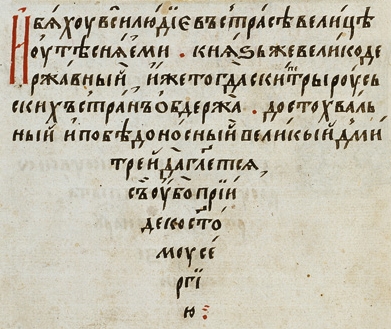 И бѧхоу вси людїе въ страсѣ велицѣ
ѿ утѣснѧеми . кнѧзь же великоде
ржавный иже тогда скиптры роусь
скихъ странъ обдержа . достохваль
ный и побѣдоносный великый дми
трей да глетсѧ ,
съ оубо прїи
де ко сто
моу се
ргї
ю :